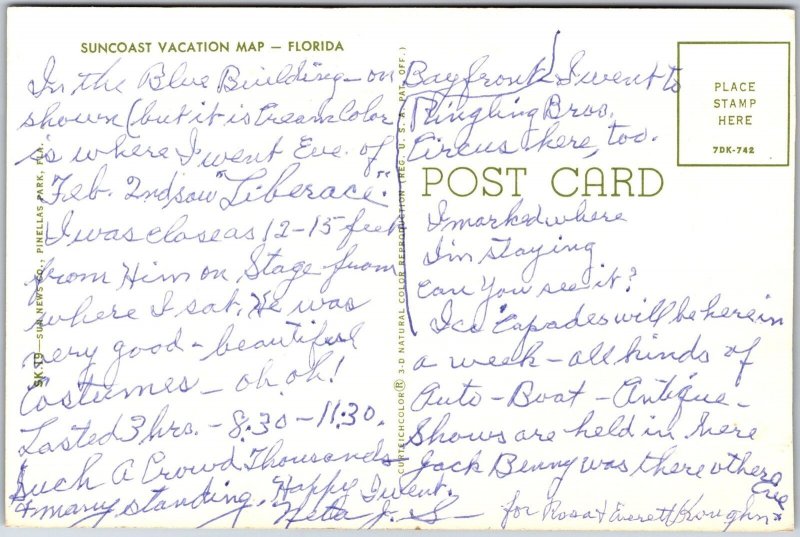 SUNCOAST VACATION MAP — FLORIDA
In the Blue Building – on Bayfront
shown (but it is Cream Color
is where I went Eve. of
Feb. 2nd saw "Liberace."
I was close as 12-15 feet
from Him on Stage from
where I sat. He was
very good – beautiful
Costumes – oh oh!
Lasted 3 hrs. – 8:30 – 11:30.
Such A Crowd Thousands
+ many standing. Happy I went.
Neta J. S
I went to
Ringling Bros.
Circus here, too.
POST CARD
I marked where
I'm staying
Can you see it?
Ice Capades will be here in
a week – all kinds of
Auto – Boat – Antique –
Shows are held in here
Jack Benny was there other
Eve
for Rosa + Everett
PLACE
STAMP
HERE
7DK-742
SK 19—SUN NEWS CO., PINELLAS PARK, FLA.
CURTEICHCOLOR® 3-D NATURAL COLOR REPRODUCTION (REG. U. S. A. PAT. OFF.)